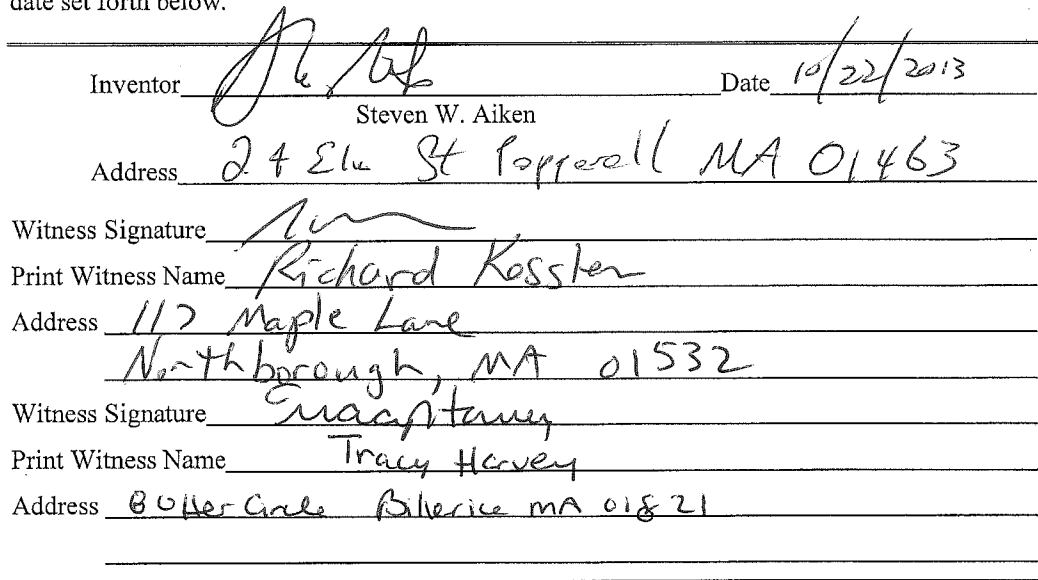 date set forth below.
Inventor Date 10/22/2013
Steven W. Aiken
Address 24 Elm St Pepperell MA 01463
Witness Signature
Print Witness Name Richard Kossler
Address 117 Maple Lane
Northborough, MA 01532
Witness Signature
Print Witness Name Tracy Harvey
Address 8 Otter Circle Billerica MA 01821